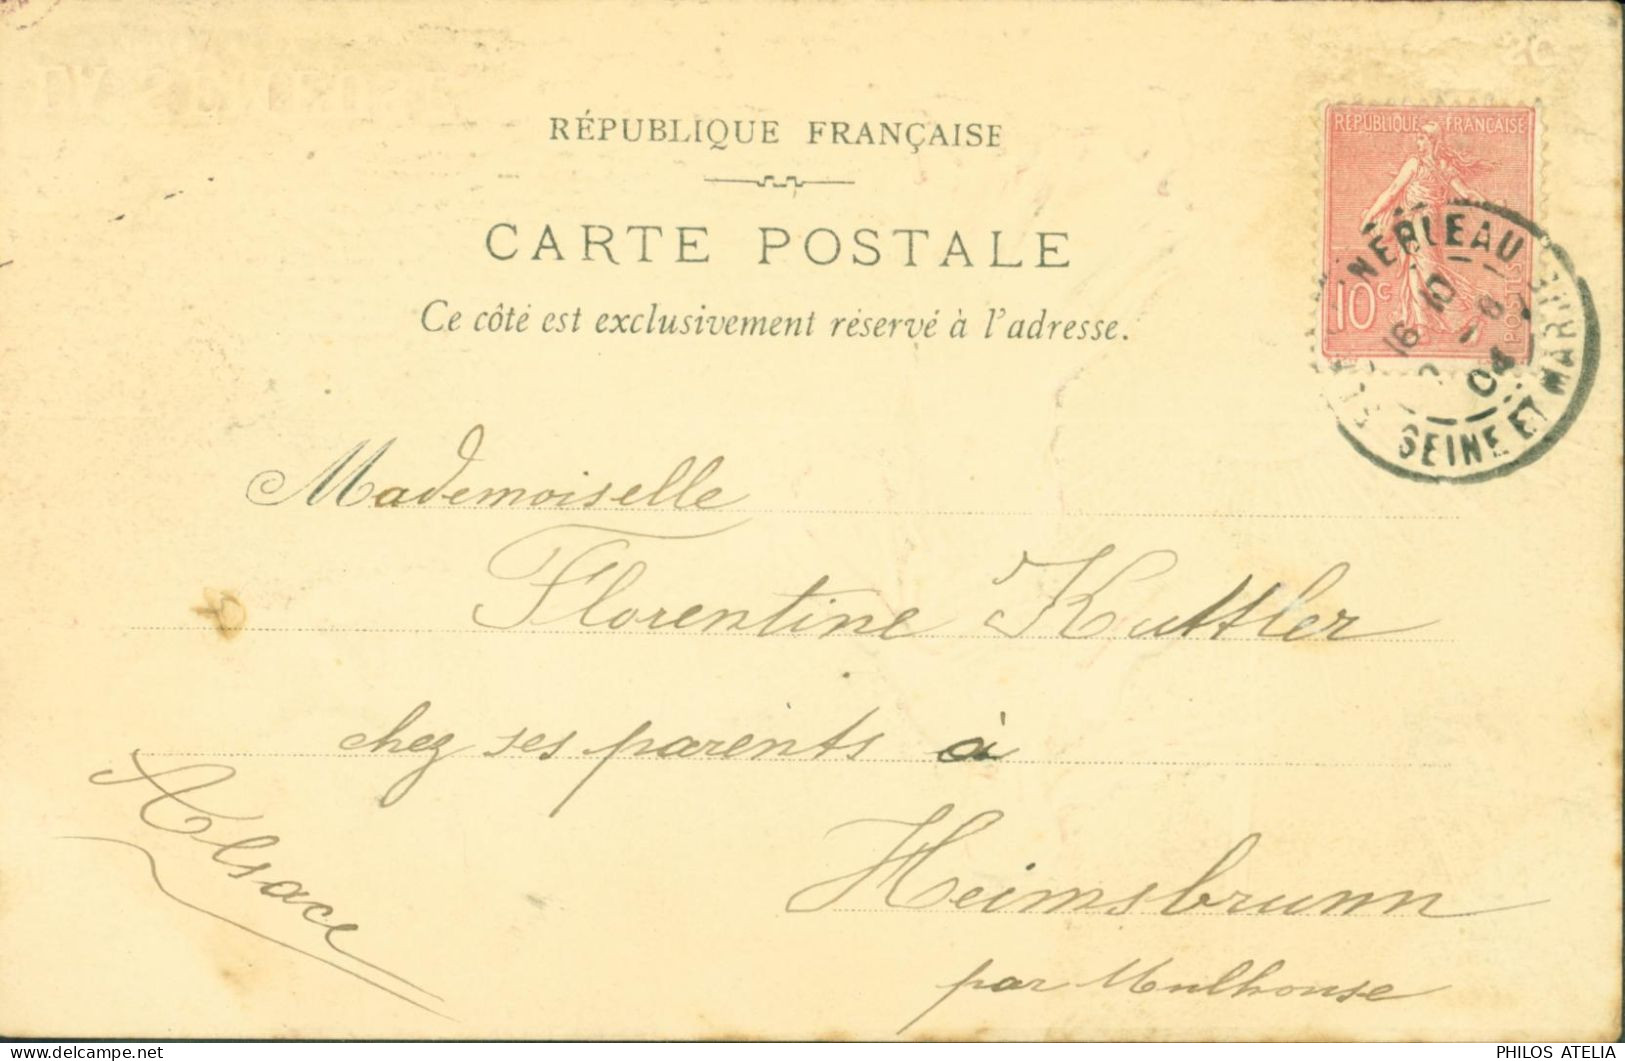 RÉPUBLIQUE FRANÇAISE
CARTE POSTALE
Ce côté est exclusivement réservé à l'adresse.
REPUBLIQUE FRANÇAISE
10c
POSTES
SEINE ET MARNE
16 10
8
04
Mademoiselle
Florentine Kuttler
chez ses parents à
Heimsbrunn
par Mulhouse
Alsace
PHILOS ATELIA